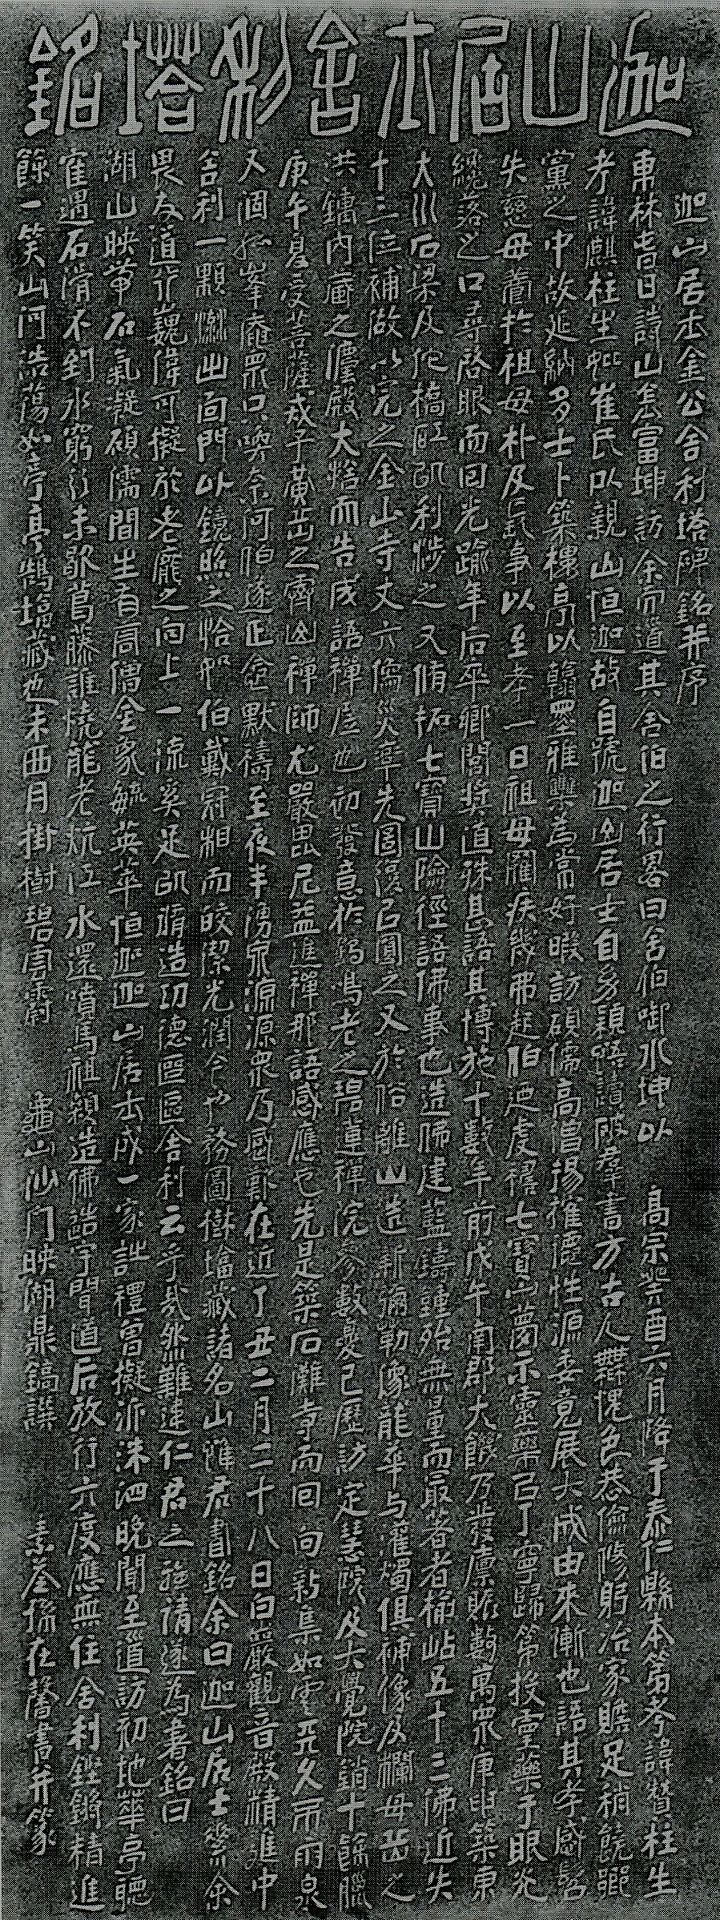 迦山居士舍利塔銘
迦山居士金公舍利塔碑銘并序
東林昔日詩山金富坤訪余而道其舍伯之行畧曰舍伯啣水坤以 高宗癸酉六月降于泰仁縣本第考諱贊柱生
考諱麒柱生妣崔氏以親山恒迦故自號迦山居士自幼穎悟讀破羣書方古人無愧色恭儉修躬治家贍足稍饒鄉
黨之中故延納多士卜築樓亭以翰墨雅樂為常好暇訪碩儒高僧揚搉性源委竟展大成由來漸也語其孝感髫
失慈母養於祖母朴及長事以至孝一日祖母罹疾幾弗起伯迺虔禱七寶山夢示靈藥已丁寧歸第投靈藥于眼光
纔落之口尋啓眼而回光踰年后卒鄉閭奬道殊甚語其博施十數年前戊午南郡大饑乃發廩賑數萬衆庚申築東
大川石梁及佗橋肛凱利涉之又脩拓七寶山險徑語佛事也造佛建藍鑄鍾殆無量而最著者楡岾五十三佛近失
十三位補做以完之金山寺丈六像災率先圖復已圓之又於俗離山造新彌勒像龍華与灌燭俱補像及欄母岳之
洪鍾內藏之殿大而告成語禪居也初發意於鶴鳴老之碧蓮禪院參數夏已歷訪定慧院及大覺院銷十餘臘
庚午夏受菩薩戒于黃岳之霽山禪師尤嚴毘尼益進禪那語感應也先是築石灘寺而回向新集如雲旱久而雨泉
又涸孤峯菴眾口喚奈何伯遂正念默禱至夜半湧泉源源眾乃感歎在近丁丑二月二十八日白巖觀音殿精進中
舍利一顆湧出面門以鏡照之恰如伯戴冠相而皎潔光潤今也務圖樹塔藏諸名山唯君書銘余曰迦山居士余
畏友道行巍偉可擬於老龐之向上一流奚足以謂造功德區區舍利云乎哉然難違仁君之強請遂為著銘曰
湖山映帶石氣凝碩儒間生有高僧金家毓英華恒迦迦山居士成一家詩禮曾擬派洙泗晚聞至道訪初地華亭聽
遇石滑不到水窮行未歇葛藤誰燒龍老炕江水還噴馬祖顙造佛造宇聞道后放行六度應無住舍利鏗鏘精進
餘一笑山河浩蕩如亭亭鶴塔藏也未西月掛樹碧雲霽 龜山沙门映湖鼎鎬譔 素荃孫在馨書并篆